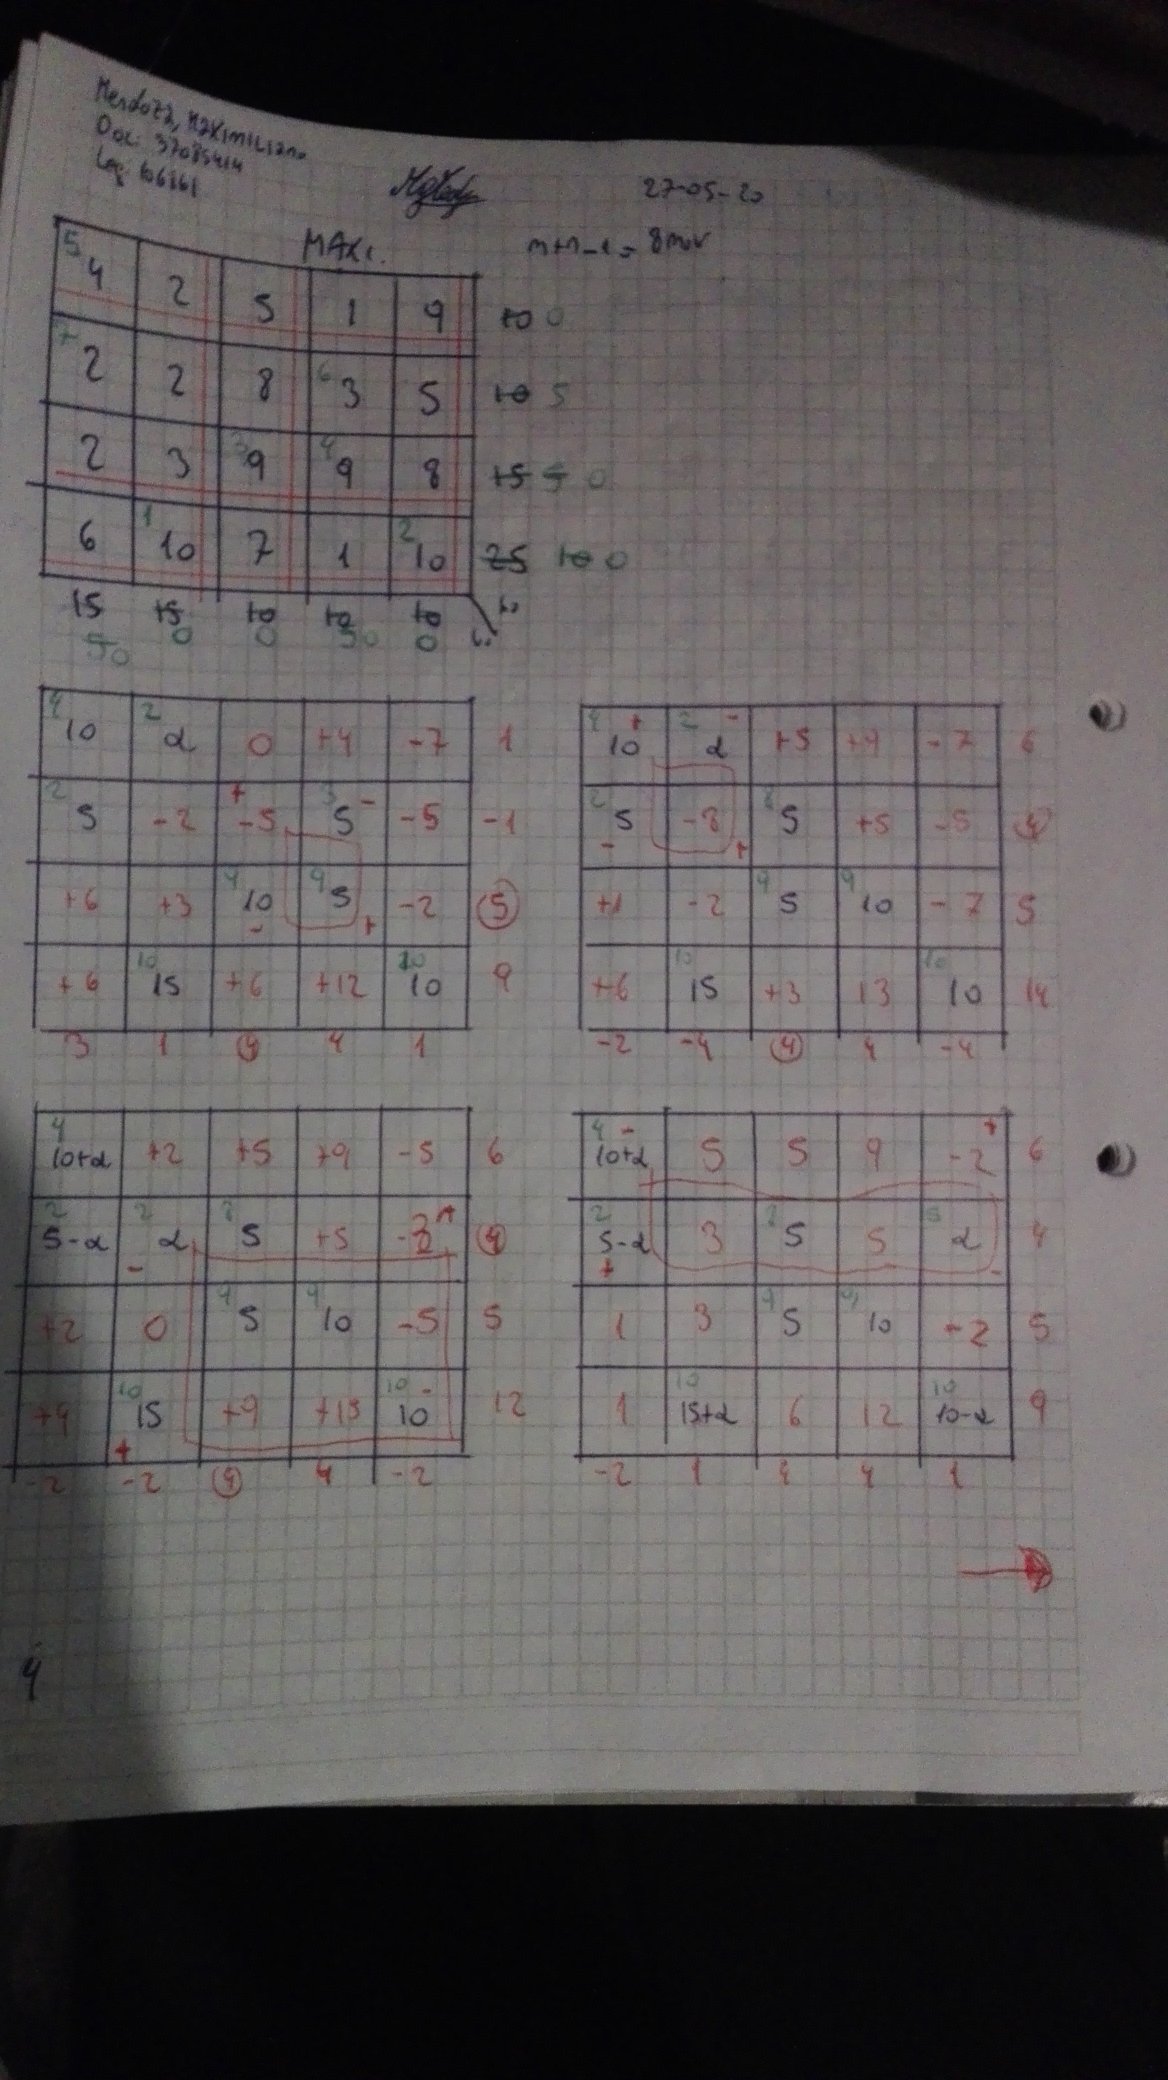 Mendoza, Maximiliano
Doc: 37085414
Leg: 106161
27-05-20
MAX.
m+n-1= 8 mov
5 4 2 5 1 9 10 0
7 2 2 8 6 3 5 10 5
2 3 3 9 4 9 8 15 5 0
6 1 10 7 1 2 10 25 10 0
15 15 10 10 10
5 0 0 0 5 0 0
4 10 2 α 0 +4 -7 1
2 5 -2 + -5 3 5 - -5 -1
+6 +3 9 10 - 9 5 + -2 5
+6 10 15 +6 +12 10 10 9
3 1 4 4 1
4 10 + 2 α - +5 +9 -7 6
2 5 - -3 + 8 5 +5 -5 4
+1 -2 9 5 9 10 -7 5
+6 10 15 +3 13 10 10 14
-2 -4 4 4 -4
4 10+α +2 +5 +9 -5 6
2 5-α 2 α - 8 5 +5 -3 + 4
+2 0 9 5 9 10 -5 5
+4 10 15 + +9 +15 10 10 - 12
-2 -2 4 4 -2
4 10+α - 5 5 9 -2 + 6
2 5-α + 3 8 5 5 5 α - 4
1 3 9 5 9 10 -2 5
1 10 15+α 6 12 10 10-α 9
-2 1 4 4 1
4